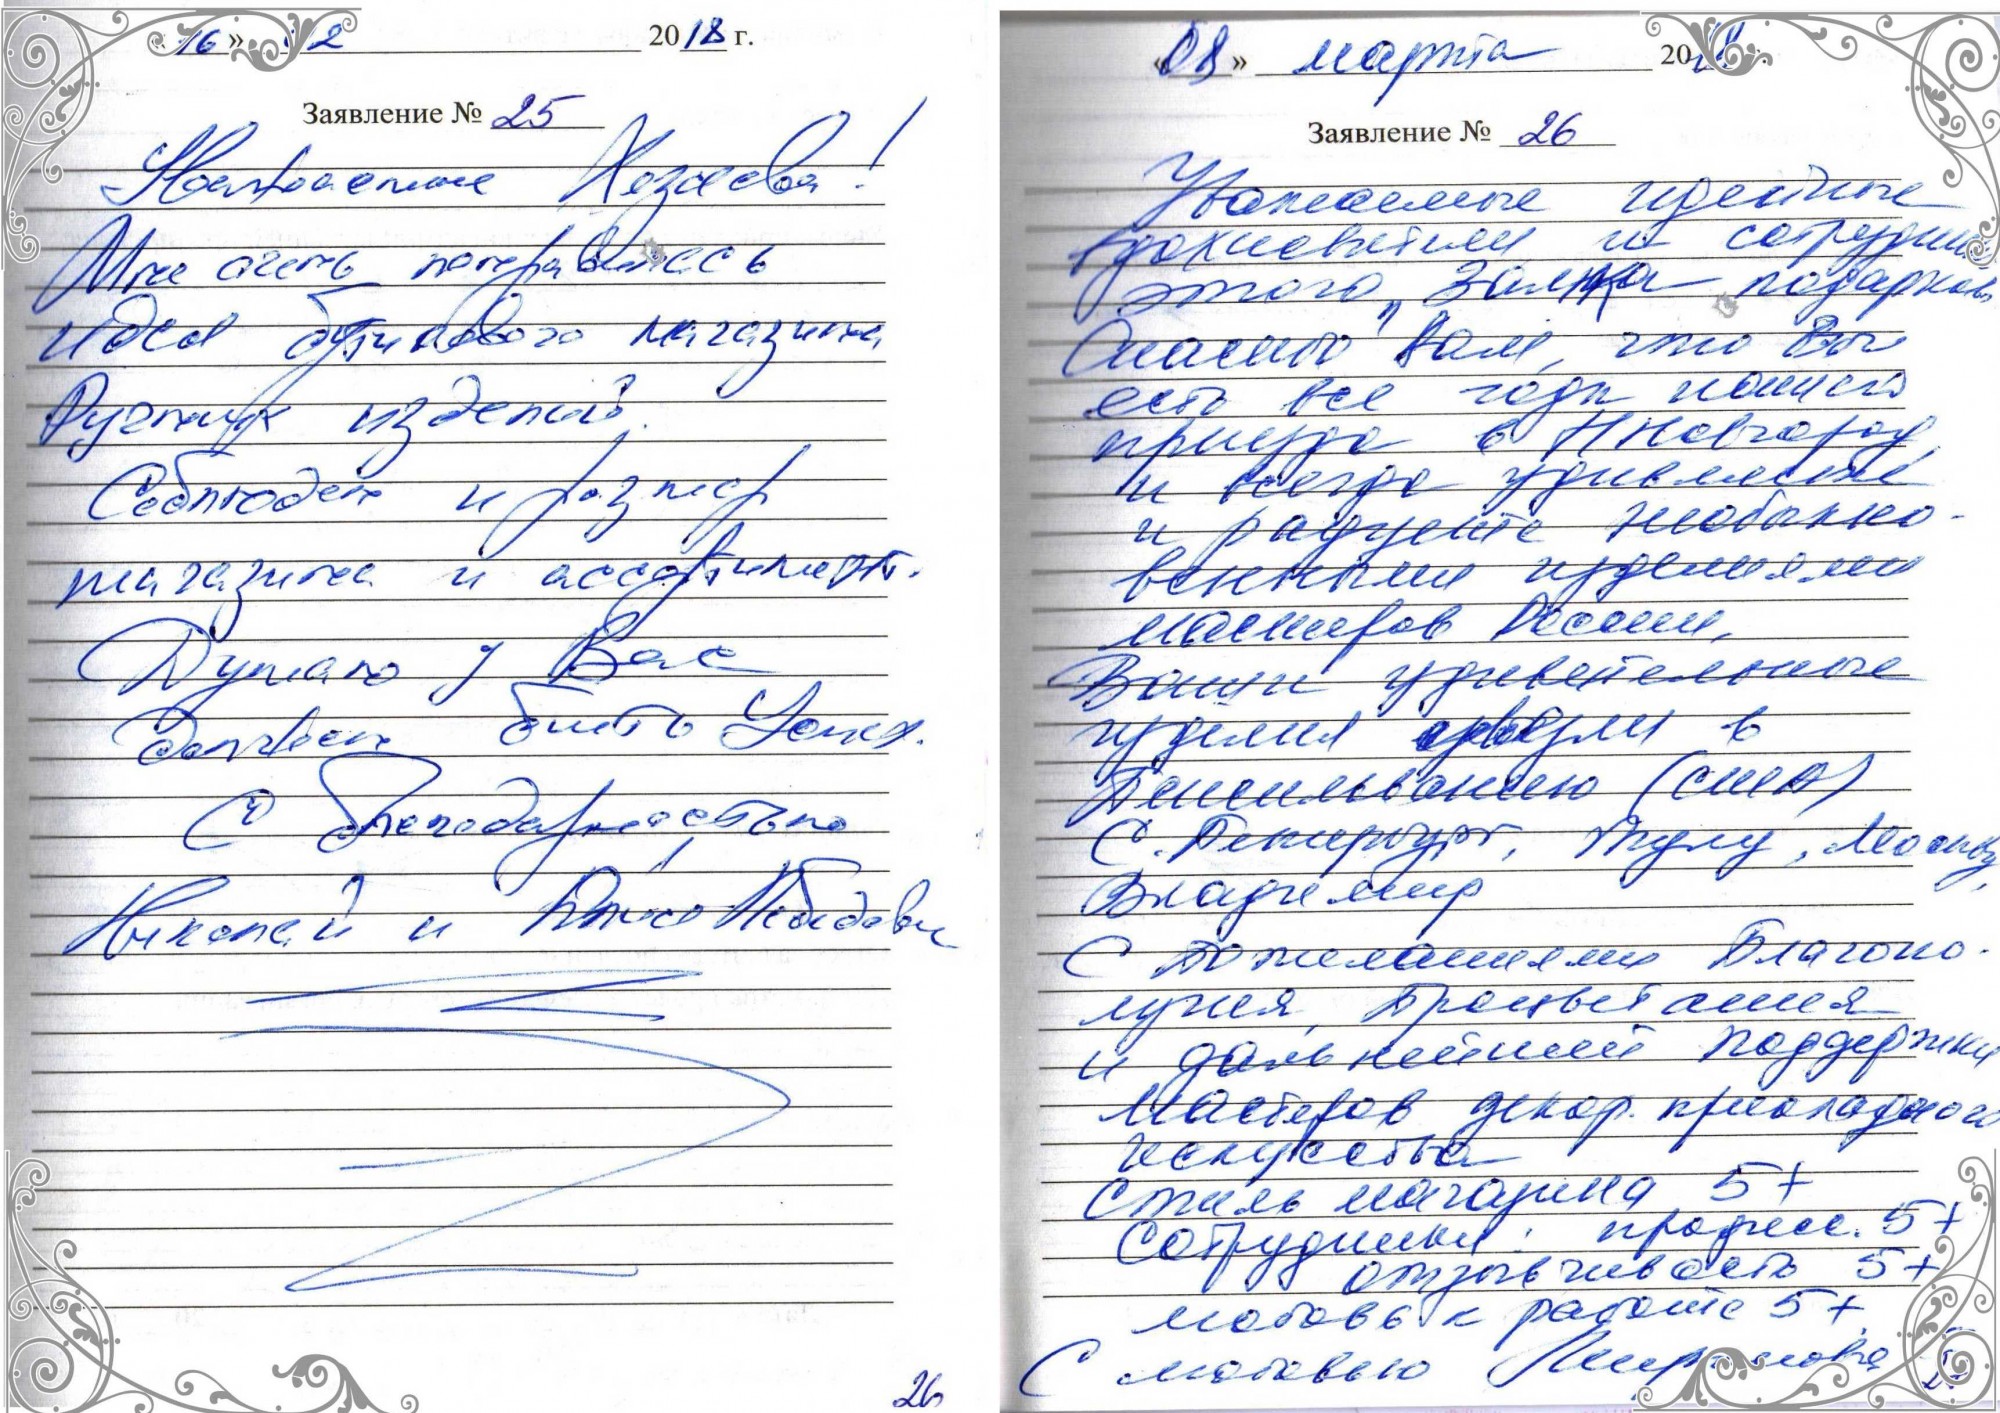 «16» 02 2018 г.
Заявление № 25
Уважаемые Хозяева!
Мне очень понравилась
идея бутикового магазина
Ручных изделий.
Соблюден и размер
магазина и ассортимент.
Думаю у Вас
должен быть Успех.
С благодарностью
Николай и Лебедевы
26
«08» марта 20
Заявление № 26
Уважаемые идейные
вдохновители и сотрудники
этого подарков
Спасибо Вам, что Вы
есть все годы нашего
приезда в ННовгород
и всегда удивляете
и радуете необыкно-
венными изделиями
мастеров России.
Ваши удивительные
изделия в
Пенсильванию (США)
С. Петербург, Тулу, Москву,
Владимир
С пожеланиями Благопо-
лучия, Процветания
и дальнейшей Поддержки
Мастеров декор. прикладного
искусства
Стиль магазина 5+
Сотрудники: професс. 5+
отзывчивость 5+
любовь к работе 5+
С любовью